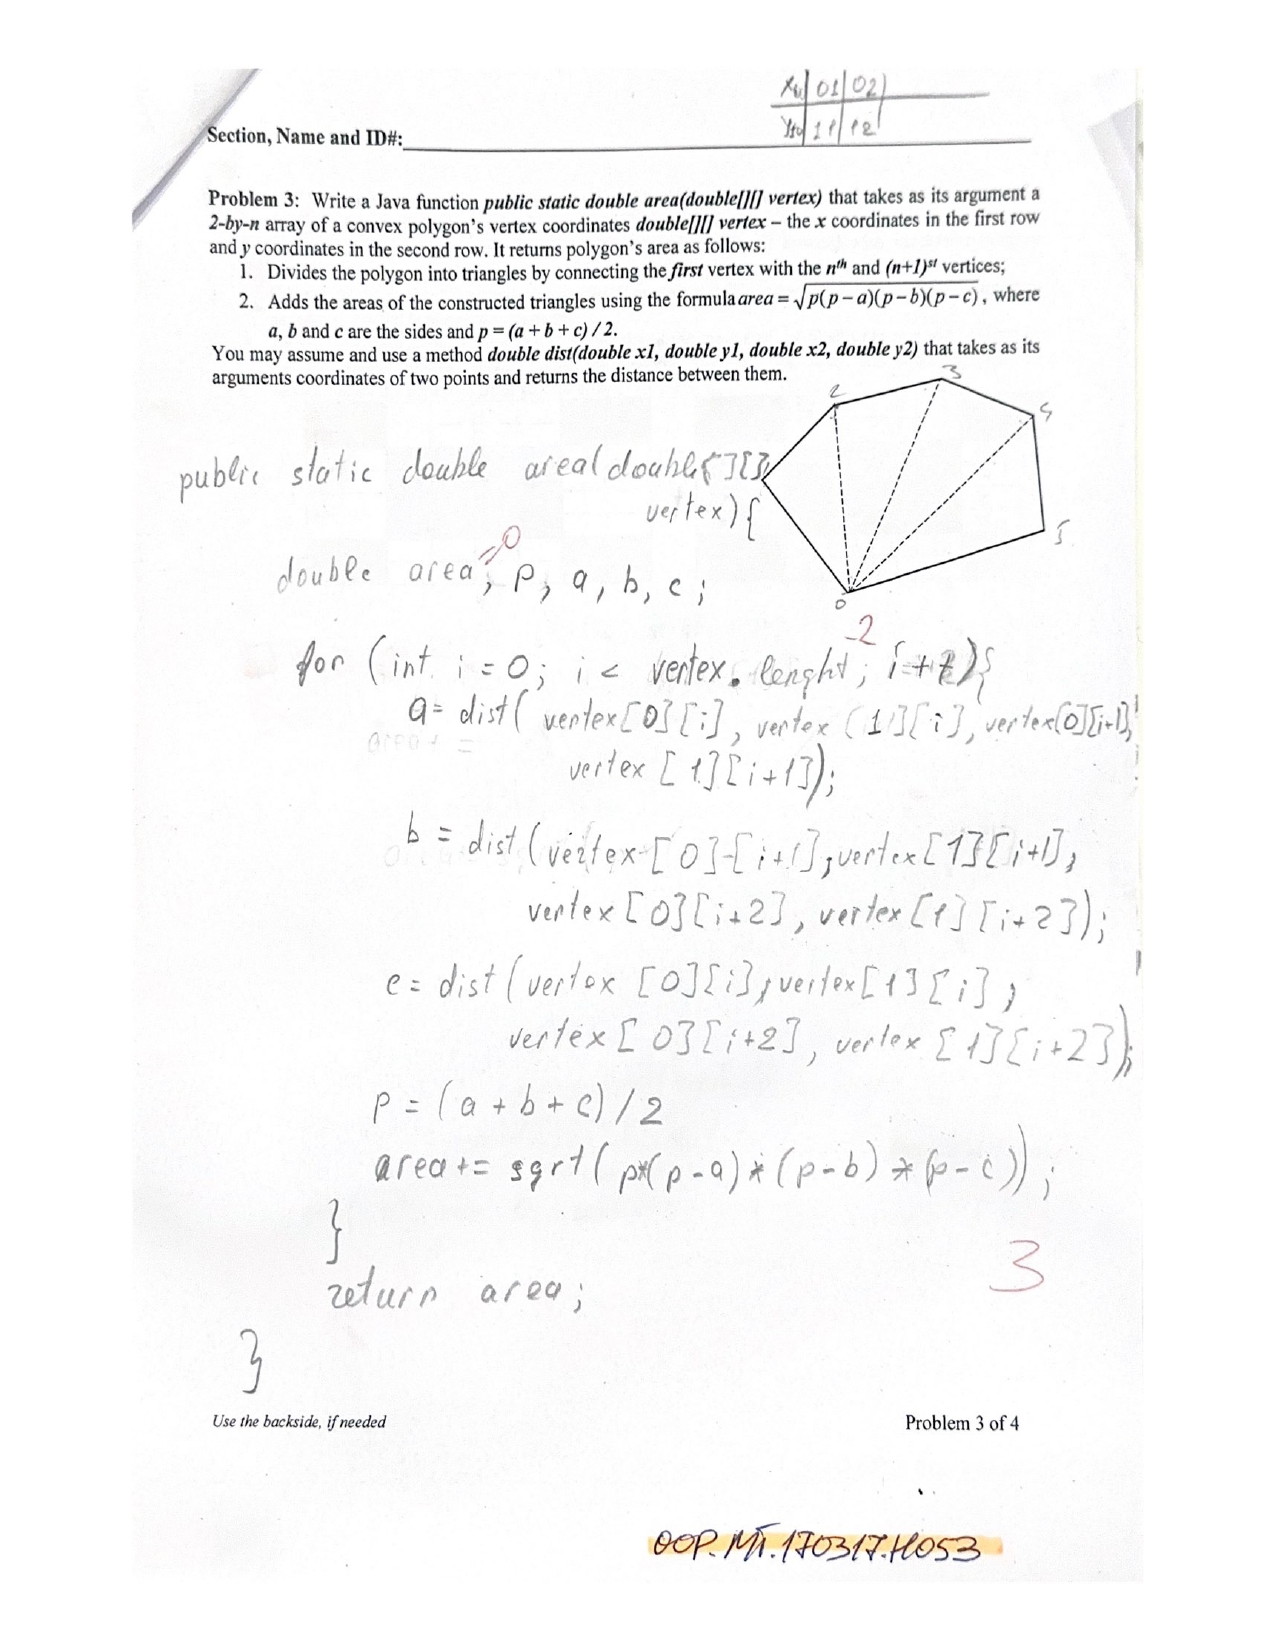 Xu | 01 | 02
Yu | 11 | 12
Section, Name and ID#:
Problem 3: Write a Java function public static double area(double[][] vertex) that takes as its argument a
2-by-n array of a convex polygon's vertex coordinates double[][] vertex – the x coordinates in the first row
and y coordinates in the second row. It returns polygon's area as follows:
1. Divides the polygon into triangles by connecting the first vertex with the nth and (n+1)st vertices;
2. Adds the areas of the constructed triangles using the formula area = √p(p − a)(p − b)(p − c), where
a, b and c are the sides and p = (a + b + c) / 2.
You may assume and use a method double dist(double x1, double y1, double x2, double y2) that takes as its
arguments coordinates of two points and returns the distance between them.
2 3 4 5 0
public static double area(double[][]
vertex){
=0
double area, p, a, b, c;
-2
for (int i = 0; i < vertex.lenght; i++){
a = dist( vertex[0][i], vertex[1][i], vertex[0][i+1],
area+ =
vertex[1][i+1]);
b = dist(vertex[0][i+1], vertex[1][i+1],
vertex[0][i+2], vertex[1][i+2]);
c = dist(vertex[0][i], vertex[1][i],
vertex[0][i+2], vertex[1][i+2]);
p = (a + b + c) / 2
area += sqrt( p*(p-a)*(p-b)*(p-c));
}
3
return area;
}
Use the backside, if needed
Problem 3 of 4
OOP.MT.170317.H053